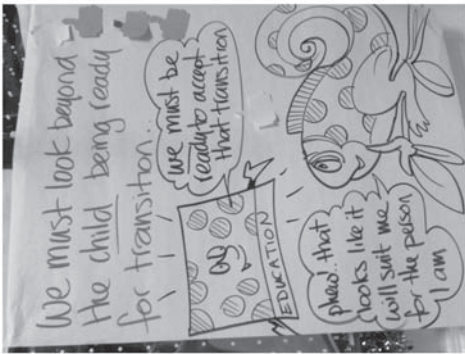 We must look beyond
the child being ready
for transition..
we must be
ready to accept
that transition
EDUCATION
phew!..that
looks like it
will suit me
for the person
I am